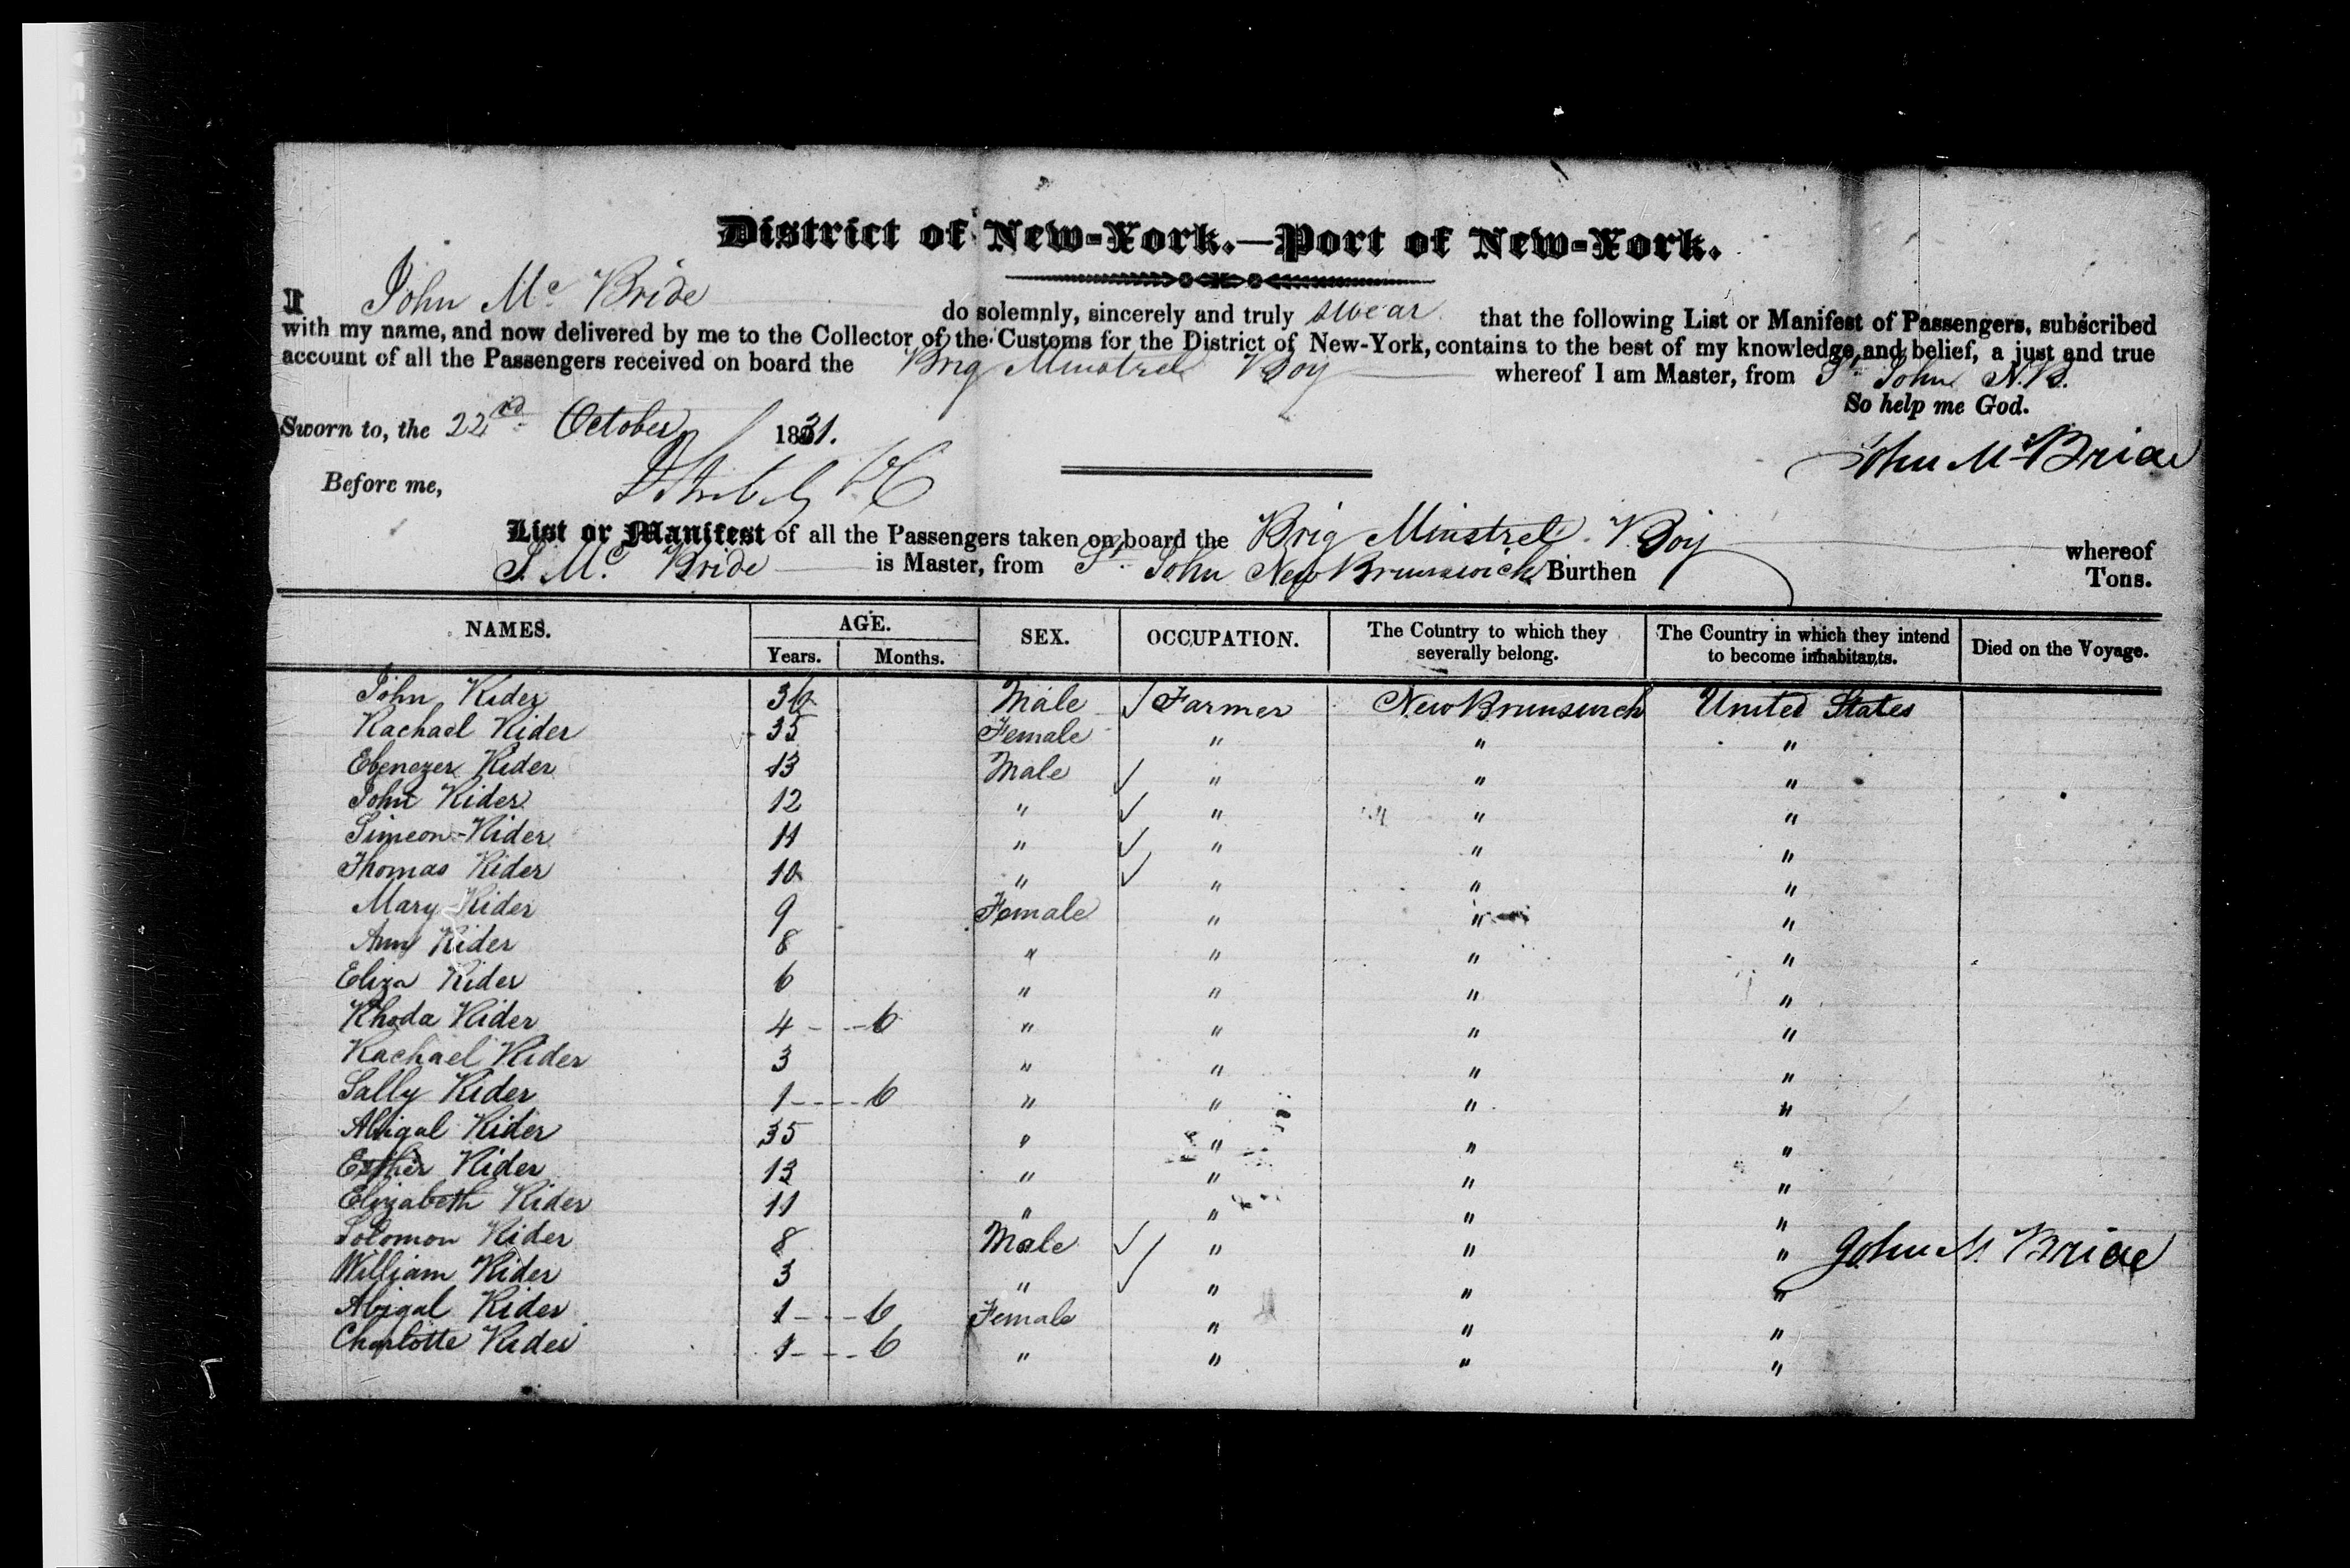 District of New-York.—Port of New-York.
I John Mc Bride do solemnly, sincerely and truly swear that the following List or Manifest of Passengers, subscribed
with my name, and now delivered by me to the Collector of the Customs for the District of New-York, contains to the best of my knowledge and belief, a just and true
account of all the Passengers received on board the Brig Minstrel Boy whereof I am Master, from St John N.B.
So help me God.
Sworn to, the 22nd October 1831.
John McBride
Before me,
List or Manifest of all the Passengers taken on board the Brig Minstrel Boy whereof
J. Mc Bride is Master, from St John New Brunswick Burthen Tons.
NAMES. AGE. Years. Months. SEX. OCCUPATION. The Country to which they severally belong. The Country in which they intend to become inhabitants. Died on the Voyage.
John Rider 36 Male ✓ Farmer New Brunswick United States
Rachael Rider 35 Female " " "
Ebenezer Rider 13 Male ✓ " " "
John Rider 12 " ✓ " " "
Simeon Rider 11 " ✓ " " "
Thomas Rider 10 " ✓ " " "
Mary Rider 9 Female " " "
Ann Rider 8 " " " "
Eliza Rider 6 " " " "
Rhoda Rider 4 - -- 6 " " " "
Rachael Rider 3 " " " "
Sally Rider 1 ---- 6 " " " "
Abigal Rider 35 " " " "
Esther Rider 13 " " " "
Elizabeth Rider 11 " " " "
Solomon Rider 8 Male ✓ " " " John Mc Bride
William Rider 3 " ✓ " " "
Abigal Rider 1 --- 6 Female " " "
Charlotte Rider 1 --- 6 " " " "